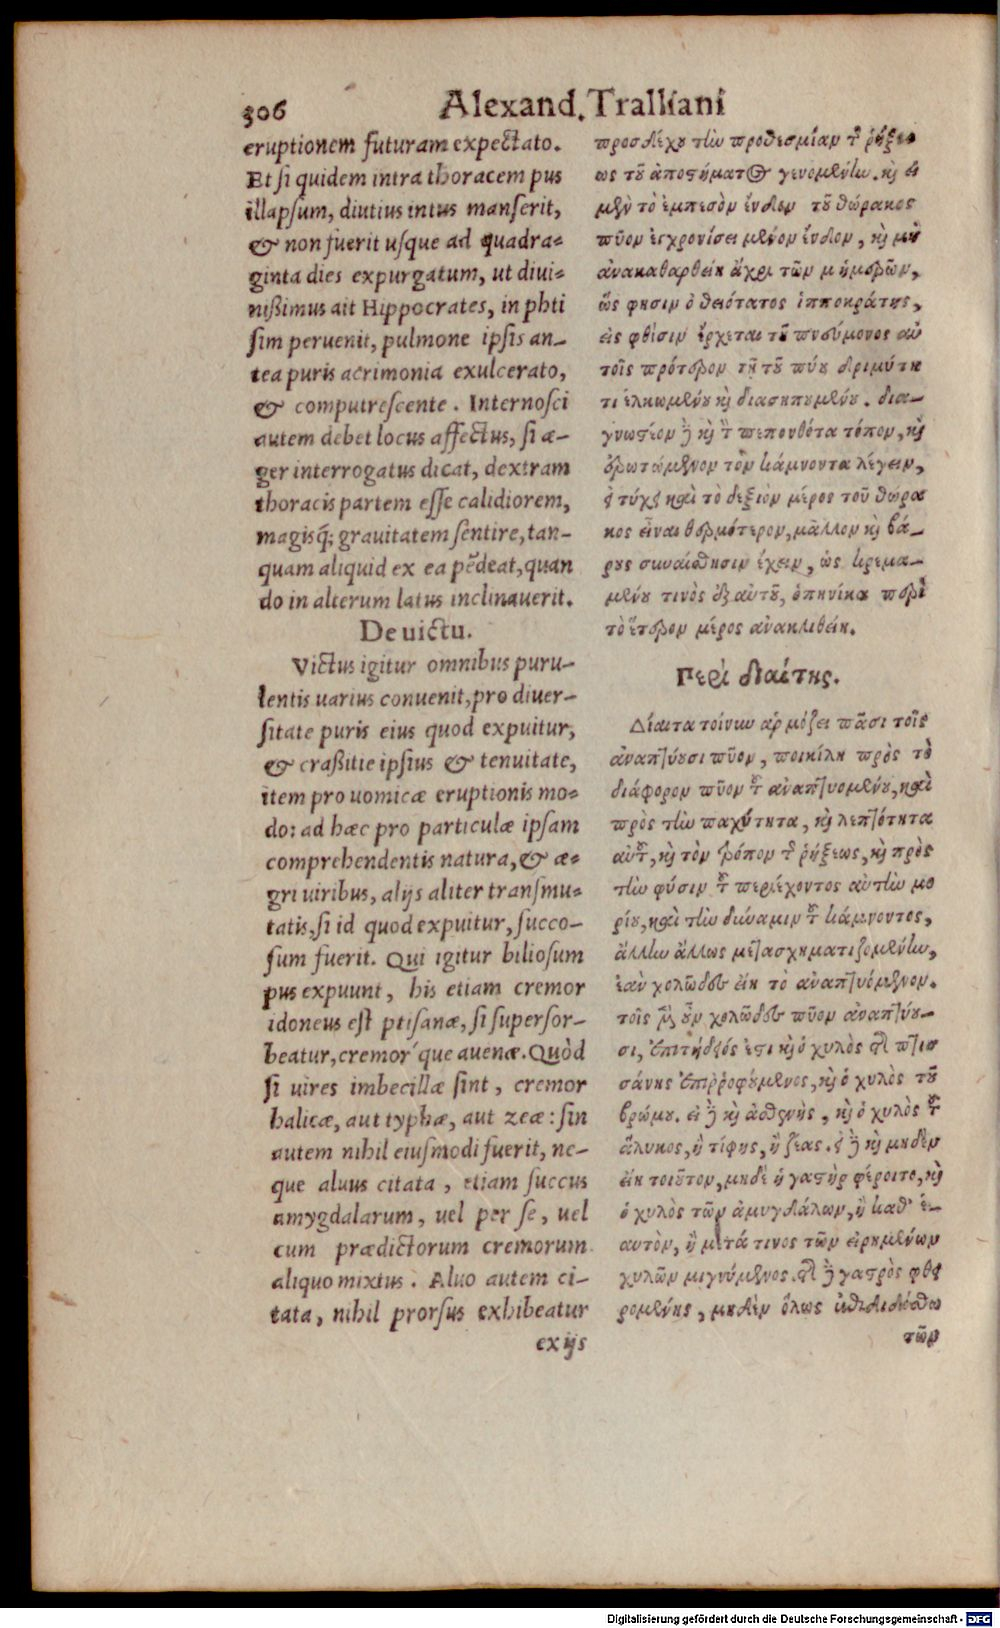 306
Alexand. Tralliani
eruptionem futuram expectato.
Et si quidem intra thoracem pus
illapsum, diutius intus manserit,
& non fuerit usque ad quadra-
ginta dies expurgatum, ut diui-
nißimus ait Hippocrates, in phti
sim peruenit, pulmone ipsis an-
tea puris acrimonia exulcerato,
& computrescente. Internosci
autem debet locus affectus, si æ-
ger interrogatus dicat, dextram
thoracis partem esse calidiorem,
magisq́; grauitatem sentire, tan-
quam aliquid ex ea pēdeat, quan
do in alterum latus inclinauerit.
De uictu.
Victus igitur omnibus puru-
lentis uarius conuenit, pro diuer-
sitate puris eius quod expuitur,
& craßitie ipsius & tenuitate,
item pro uomicæ eruptionis mo-
do: ad hæc pro particulæ ipsam
comprehendentis natura, & æ-
gri uiribus, alijs aliter transmu-
tatis, si id quod expuitur, succo-
sum fuerit. Qui igitur biliosum
pus expuunt, his etiam cremor
idoneus est ptisanæ, si supersor-
beatur, cremorq́ue auenæ. Quòd
si uires imbecillæ sint, cremor
halicæ, aut typhæ, aut zeæ: sin
autem nihil eiusmodi fuerit, ne-
que aluus citata, etiam succus
amygdalarum, uel per se, uel
cum prædictorum cremorum
aliquo mixtus. Aluo autem ci-
tata, nihil prorsus exhibeatur
ex ijs
προσδέχου τὴν προθεσμίαν τῆς ῥήξε
ως τοῦ ἀποστήματος γενομένην. καὶ εἰ
μὲν τὸ ἐμπεσὸν ἔνδον τοῦ θώρακος
πῦον ἐγχρονίσει μένον ἔνδον, καὶ μὴ
ἀνακαθαρθείη ἄχρι τῶν μ ἡμερῶν,
ὥς φησιν ὁ θειότατος ἱπποκράτης,
εἰς φθίσιν ἔρχεται τοῦ πνεύμονος αὐ
τοῖς πρότερον τῇ τοῦ πύου δριμύτη
τι ἑλκωμένου καὶ διασηπομένου. δια-
γνωστέον δὲ καὶ τὸν πεπονθότα τόπον, καὶ
ἐρωτώμενον τὸν κάμνοντα λέγειν,
εἰ τύχῃ καὶ τὸ δεξιὸν μέρος τοῦ θώρα
κος εἶναι θερμότερον, μᾶλλον καὶ βά-
ρους συναίσθησιν ἔχειν, ὡς κρεμα-
μένου τινὸς ἐξ αὐτοῦ, ὁπηνίκα περὶ
τὸ ἕτερον μέρος ἀνακλιθείη.
Περὶ διαίτης.
Δίαιτα τοίνυν ἁρμόζει πᾶσι τοῖς
ἀναπτύουσι πῦον, ποικίλη πρὸς τὸ
διάφορον πῦον τοῦ ἀναπτυομένου, καὶ
πρὸς τὴν παχύτητα, καὶ λεπτότητα
αὐτοῦ, καὶ τὸν τρόπον τῆς ῥήξεως, καὶ πρὸς
τὴν φύσιν τοῦ περιέχοντος αὐτὴν μο
ρίου, καὶ τὴν δύναμιν τοῦ κάμνοντος,
ἄλλην ἄλλως μετασχηματιζομένην,
ἐὰν χολῶδες εἴη τὸ ἀναπτυόμενον.
τοῖς μὲν οὖν χολῶδες πῦον ἀναπτύου-
σι, ἐπιτήδειός ἐστι καὶ ὁ χυλὸς τῆς πτισ
σάνης ἐπιῤῥοφούμενος, καὶ ὁ χυλὸς τοῦ
βρώμου. εἰ δὲ καὶ ἀσθενὴς, καὶ ὁ χυλὸς τοῦ
ἅλυκος, ἢ τίφης, ἢ ζέας. εἰ δὲ καὶ μηδὲν
εἴη τοιοῦτον, μηδὲ ἡ γαστὴρ φέροιτο, καὶ
ὁ χυλὸς τῶν ἀμυγδάλων, ἢ καθ' ἑ-
αυτὸν, ἢ μετά τινος τῶν εἰρημένων
χυλῶν μιγνύμενος. τῆς δὲ γαστρὸς φθε
ρομένης, μηδὲν ὅλως ἐπιδιδόσθω
τῶν
Digitalisierung gefördert durch die Deutsche Forschungsgemeinschaft - DFG